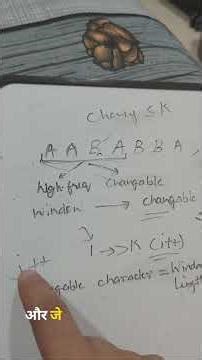 change ≤ K
A A B A B B A
high freq changable
window → changable
1 →> K (i++)
i++
changable character = Window
length
और जे